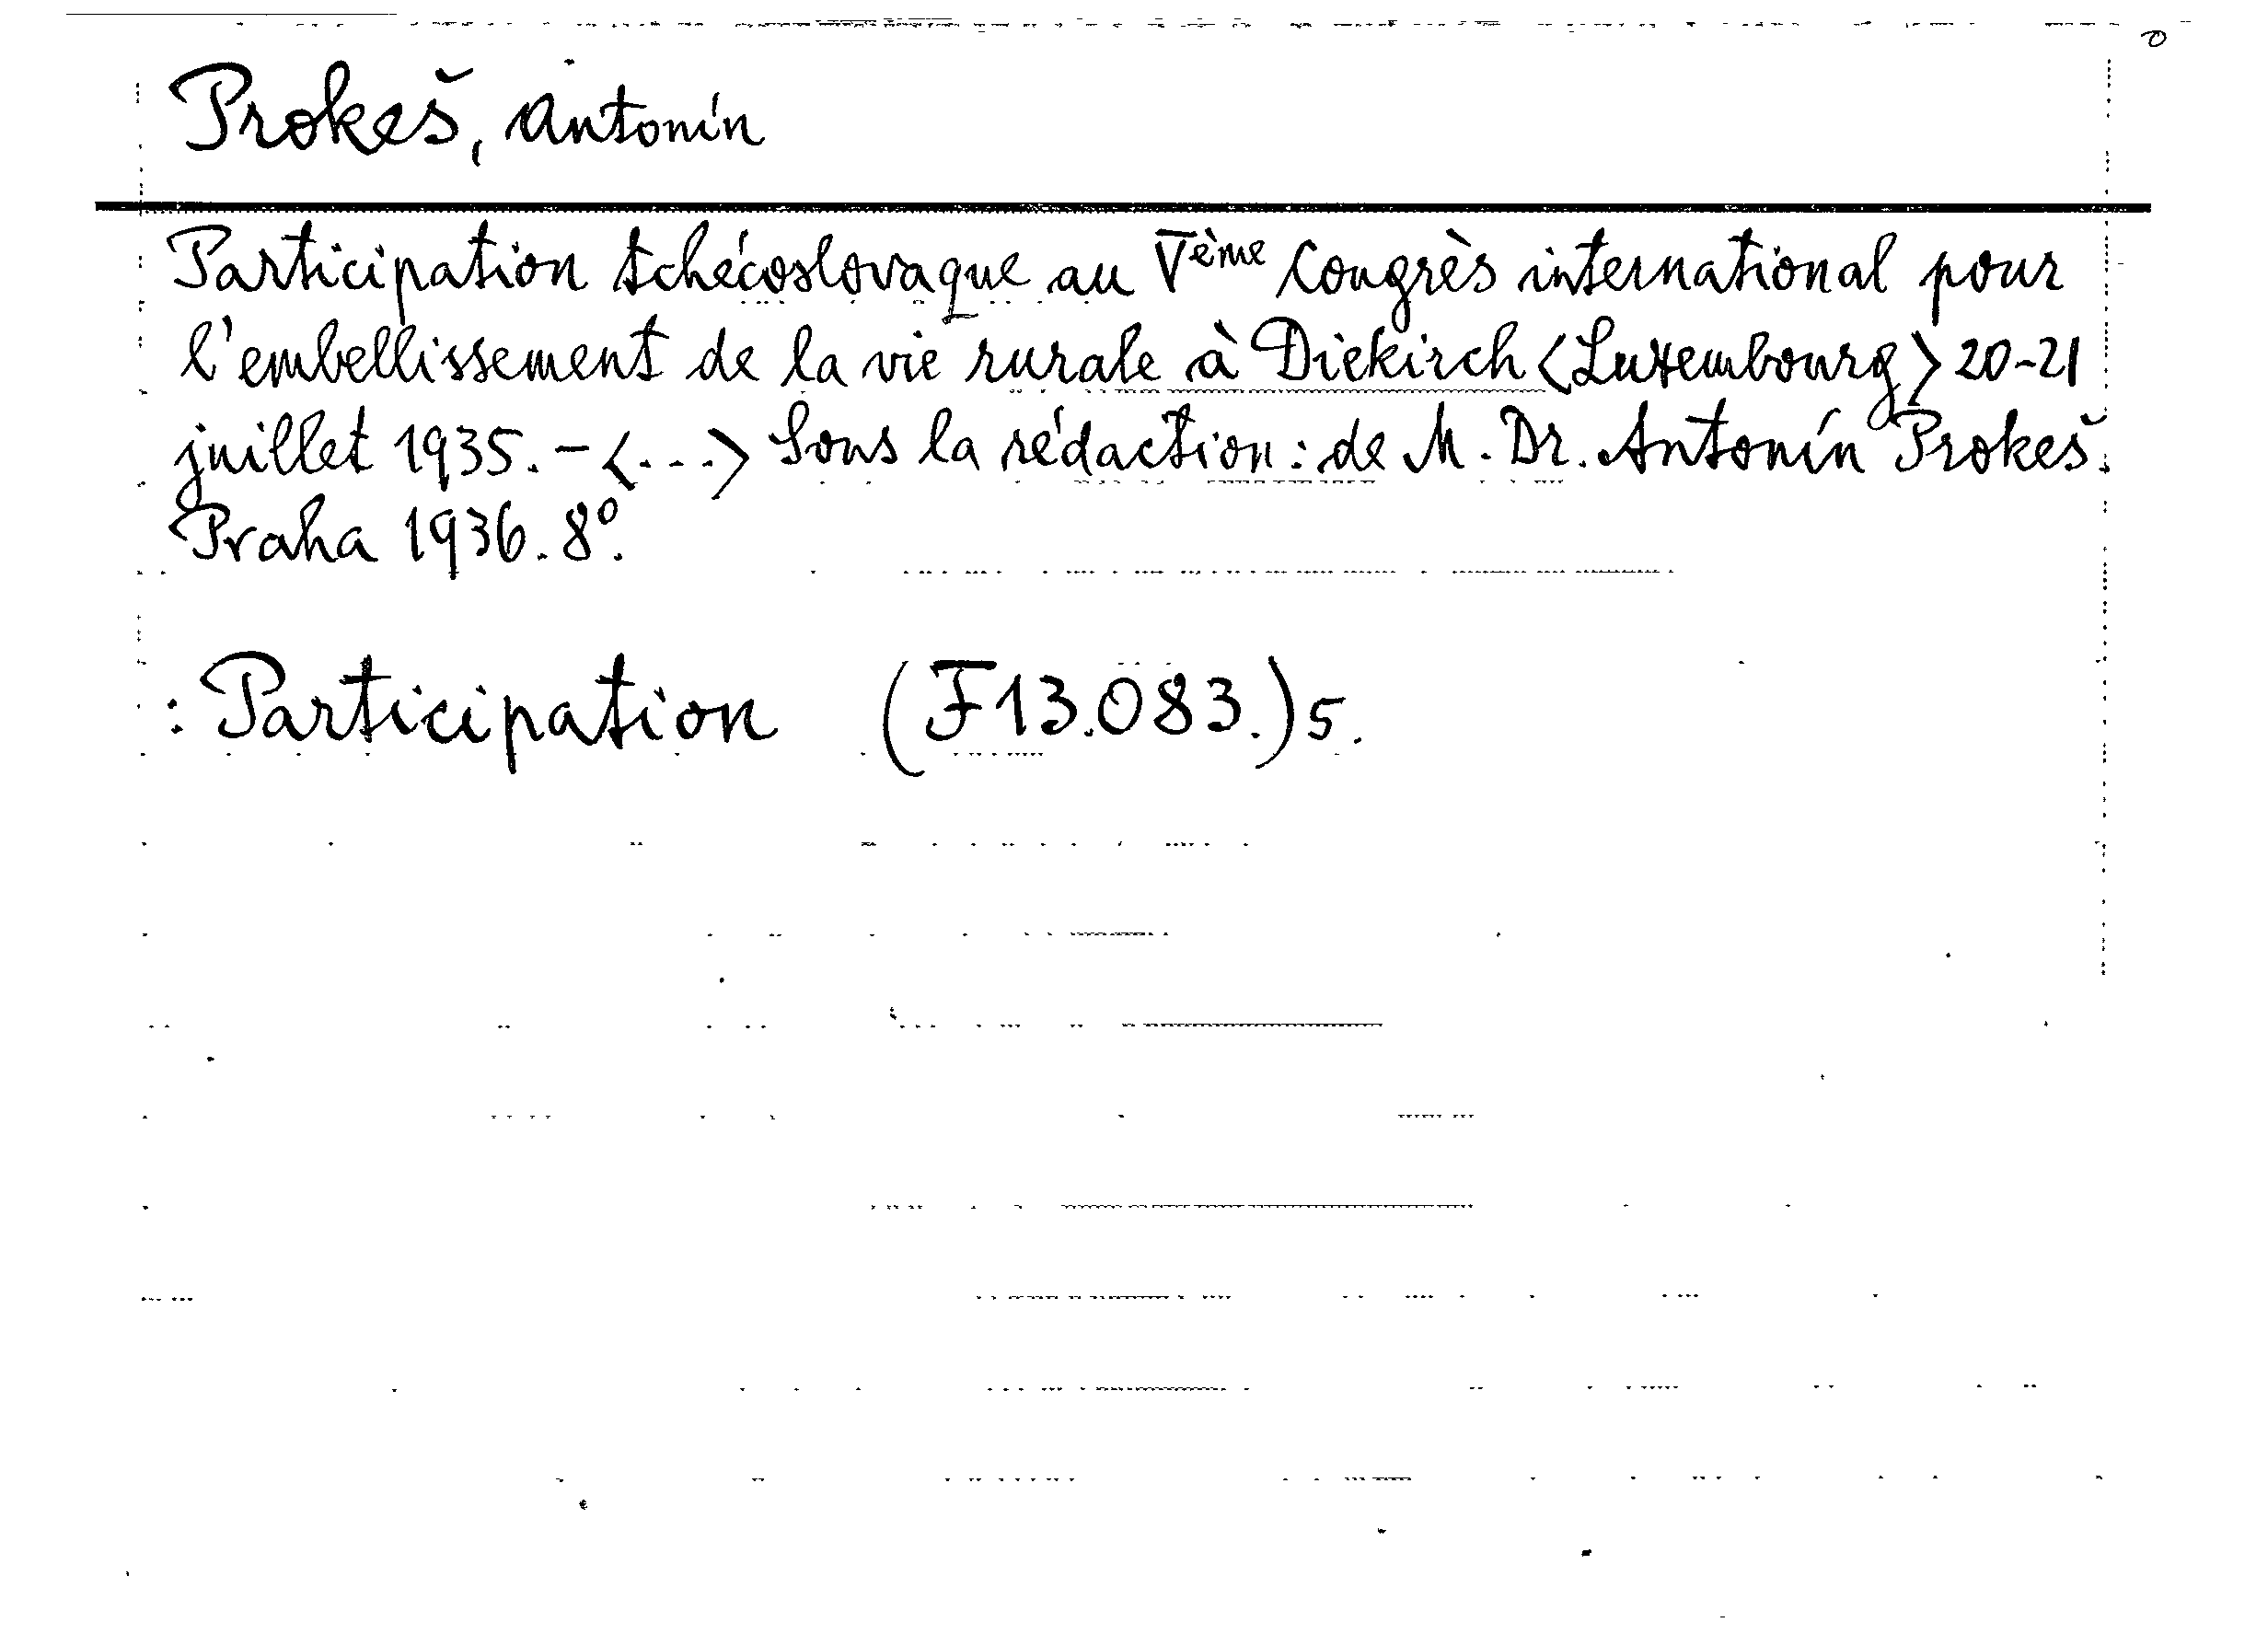 Prokeš, Antonín
Participation tchécoslovaque au Vème Congrès international pour
l'embellissement de la vie rurale à Diekirch <Luxembourg> 20-21
juillet 1935. - <...> Sous la rédaction: de M. Dr. Antonín Prokeš.
Praha 1936. 8°.
: Participation (F13.083.)5.